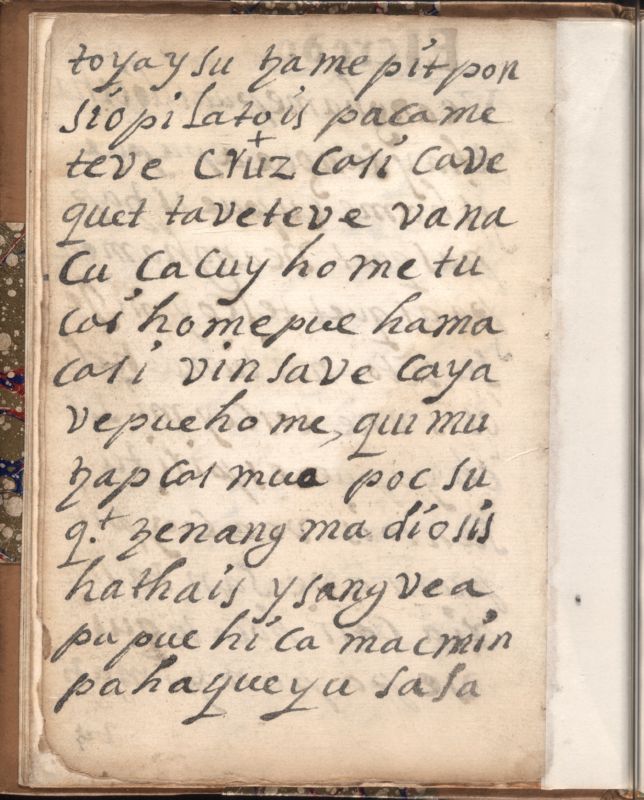 toyaysu hame pit pon
siopilatois pacame
teve Cruz Casi Cave
quet taveteve vana
Cu, Cacuy home tu
Cosi home pue hama
casi vinsave Caya
vepuehome, qui mu
hap Cas mua poc su
q.t henang ma diosis
hathais y sang vea
pu pue hi Ca macmin
pa haque yu sasa